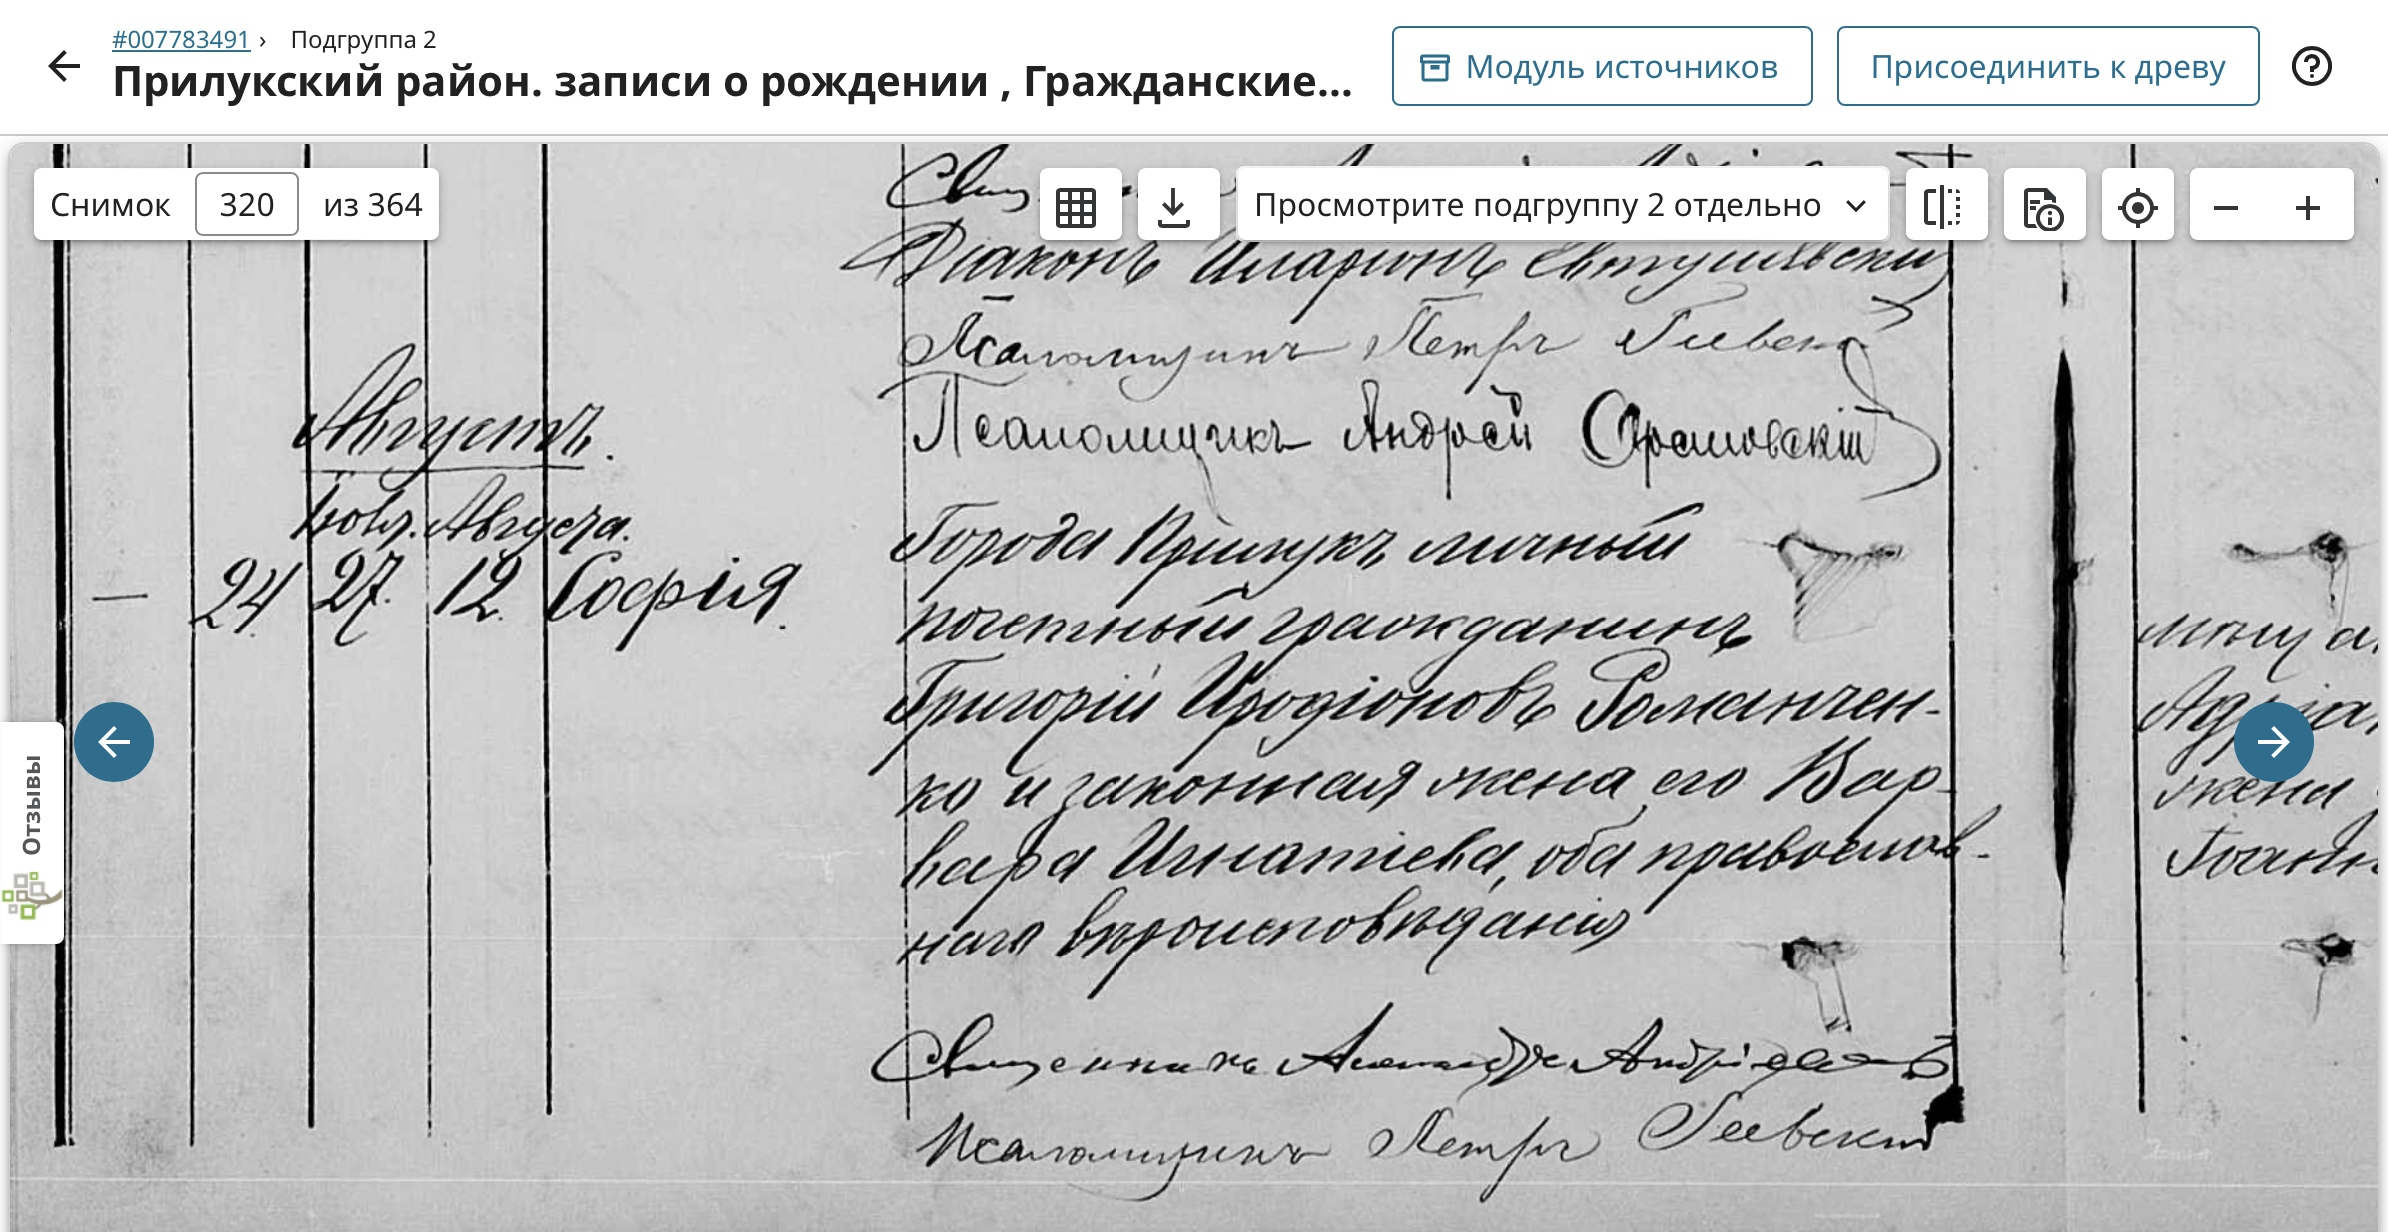 #007783491 › Подгруппа 2
Прилукский район. записи о рождении , Гражданские...
Модуль источников
Присоединить к древу
Снимок 320 из 364
Просмотрите подгруппу 2 отдельно
Отзывы
Діаконъ Иларіонъ Евтушевскій
Псаломщикъ Петръ Гиевскій
Псаломщикъ Андрей
Августъ.
Августа.
— 24. 27. 12. Софія.
Города Прилукъ личный
почетный гражданинъ
Григорій Иродіоновъ Романчен-
ко и законная жена его Вар-
вара Игнатіева, оба православ-
наго вѣроисповѣданія
Священникъ Александръ
Псаломщикъ Петръ Гиевскій
жена